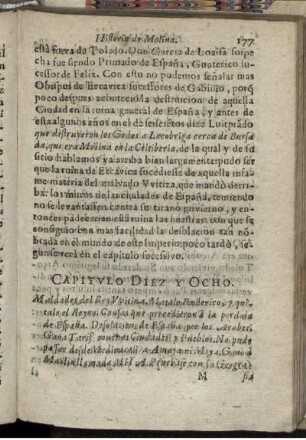 Historia de Molina. 177
està fuera de Toledo. Don Garcia de Loaisa sospe
cha fue siendo Primado de España, Gunterico su-
cessor de Felix. Con esto no podemos señalar mas
Obispos de Ercavica sucessores de Gabinio, porq̃
poco despues aconteciò la destruicion de aquella
Ciudad en la ruina general de España, y antes de
esta algunos años en el de seiscientos diez Luitprãdo
que distruyeron los Godos a Lacobriga cerca de Bursa
da, que era Molina en la Celtiberia, de la qual y de su
sitio hablamos ya arriba bien largamente: pudo ser
que la ruina de Ercavica sucediesse de aquella infa-
me materia del malvado Vvitiza, que mandò derri-
bar los muros de las ciudades de España, temiendo
no se levantassen contra su tirano govierno, y en-
tonces padecieron esta ruina las nuestras: con que se
consiguio con mas facilidad la desolacion tan nõ-
brada en el mundo de este Imperio: poco tardò, se-
gun se verà en el capitulo sucessivo.
CAPITVLO DIEZ Y OCHO.
Maldades del Rey Vvitiza, Matale Roderico, y qui-
tale el Reyno. Cosas que precedieron à la perdida
de España. Destruicion de España por los Arabes.
Gana Tarif muchas Ciudades y Pueblos. No pudo
passar desde Medinaceli à
M sia